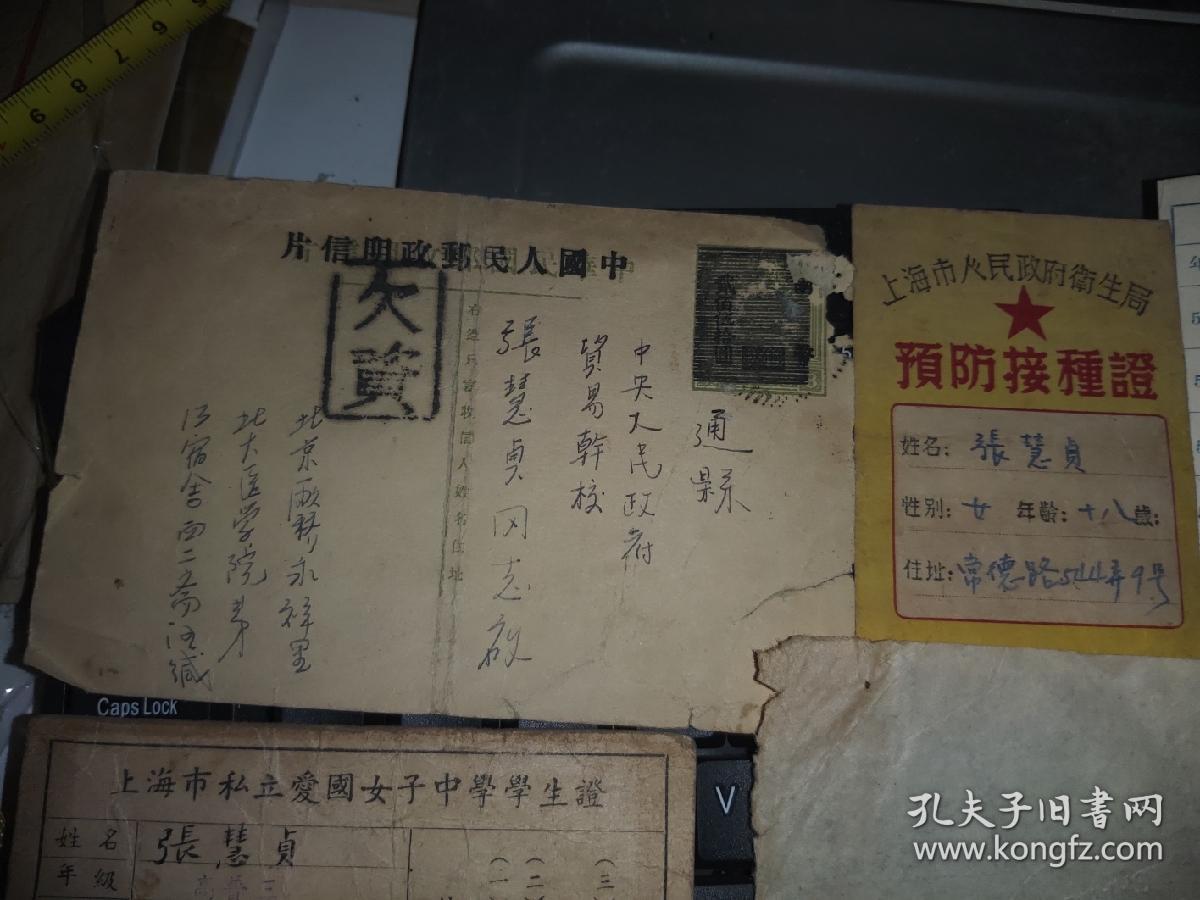 中國人民郵政明信片
欠資
通縣
中央人民政府
貿易幹校
張慧貞同志啟
北京廠橋永祥里
北大医学院第
宿舍西二斋
上海市人民政府衛生局
預防接種證
姓名：張慧貞
性别：女 年齡：十八歲：
住址：常德路544弄9号
Caps Lock
V
上海市私立愛國女子中學學生證
姓名 張慧貞
年級
(一 (二 (三
9 8 7 6
孔夫子旧书网
www.kongfz.com